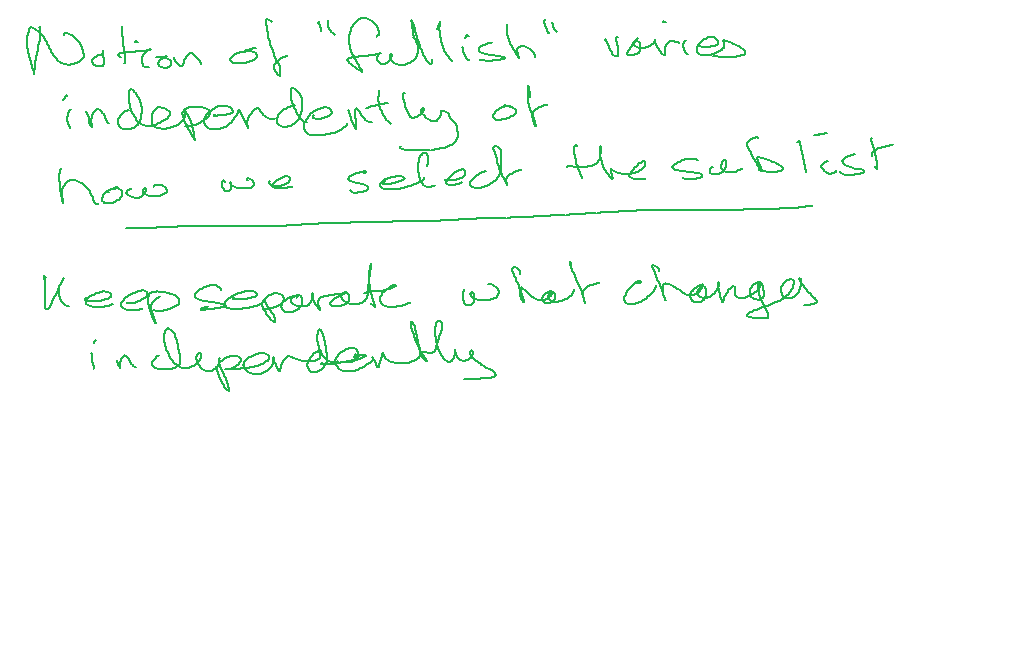 Notion of "fullish" varies
independently of
how we select the sublist
Keep separate what changes
independently